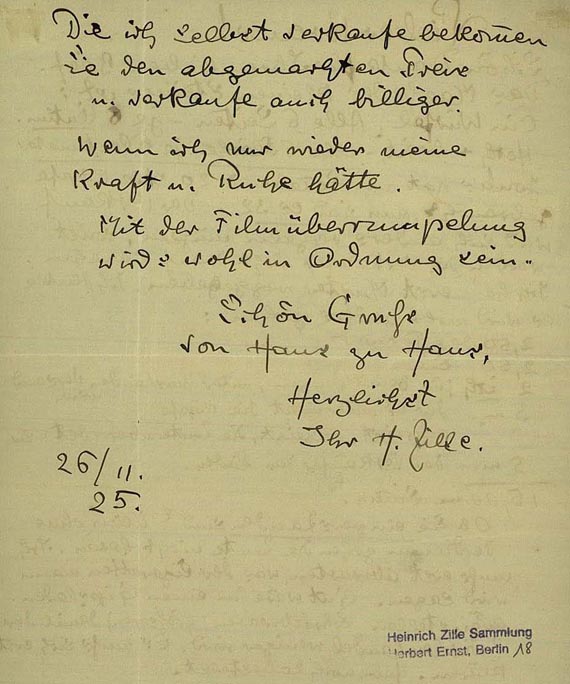 Die ich selbst verkaufe bekom̄en
Sie den abgemachten Preis
u. verkaufe auch billiger.
Wenn ich nur wieder meine
Kraft u. Ruhe hätte.
Mit der Filmüberrumpelung
wirds wohl in Ordnung sein..
Schön Gruß
von Haus zu Haus,
Herzlichst
Ihr H. Zille.
26/11.
25.
Heinrich Zille Sammlung
Herbert Ernst, Berlin 18